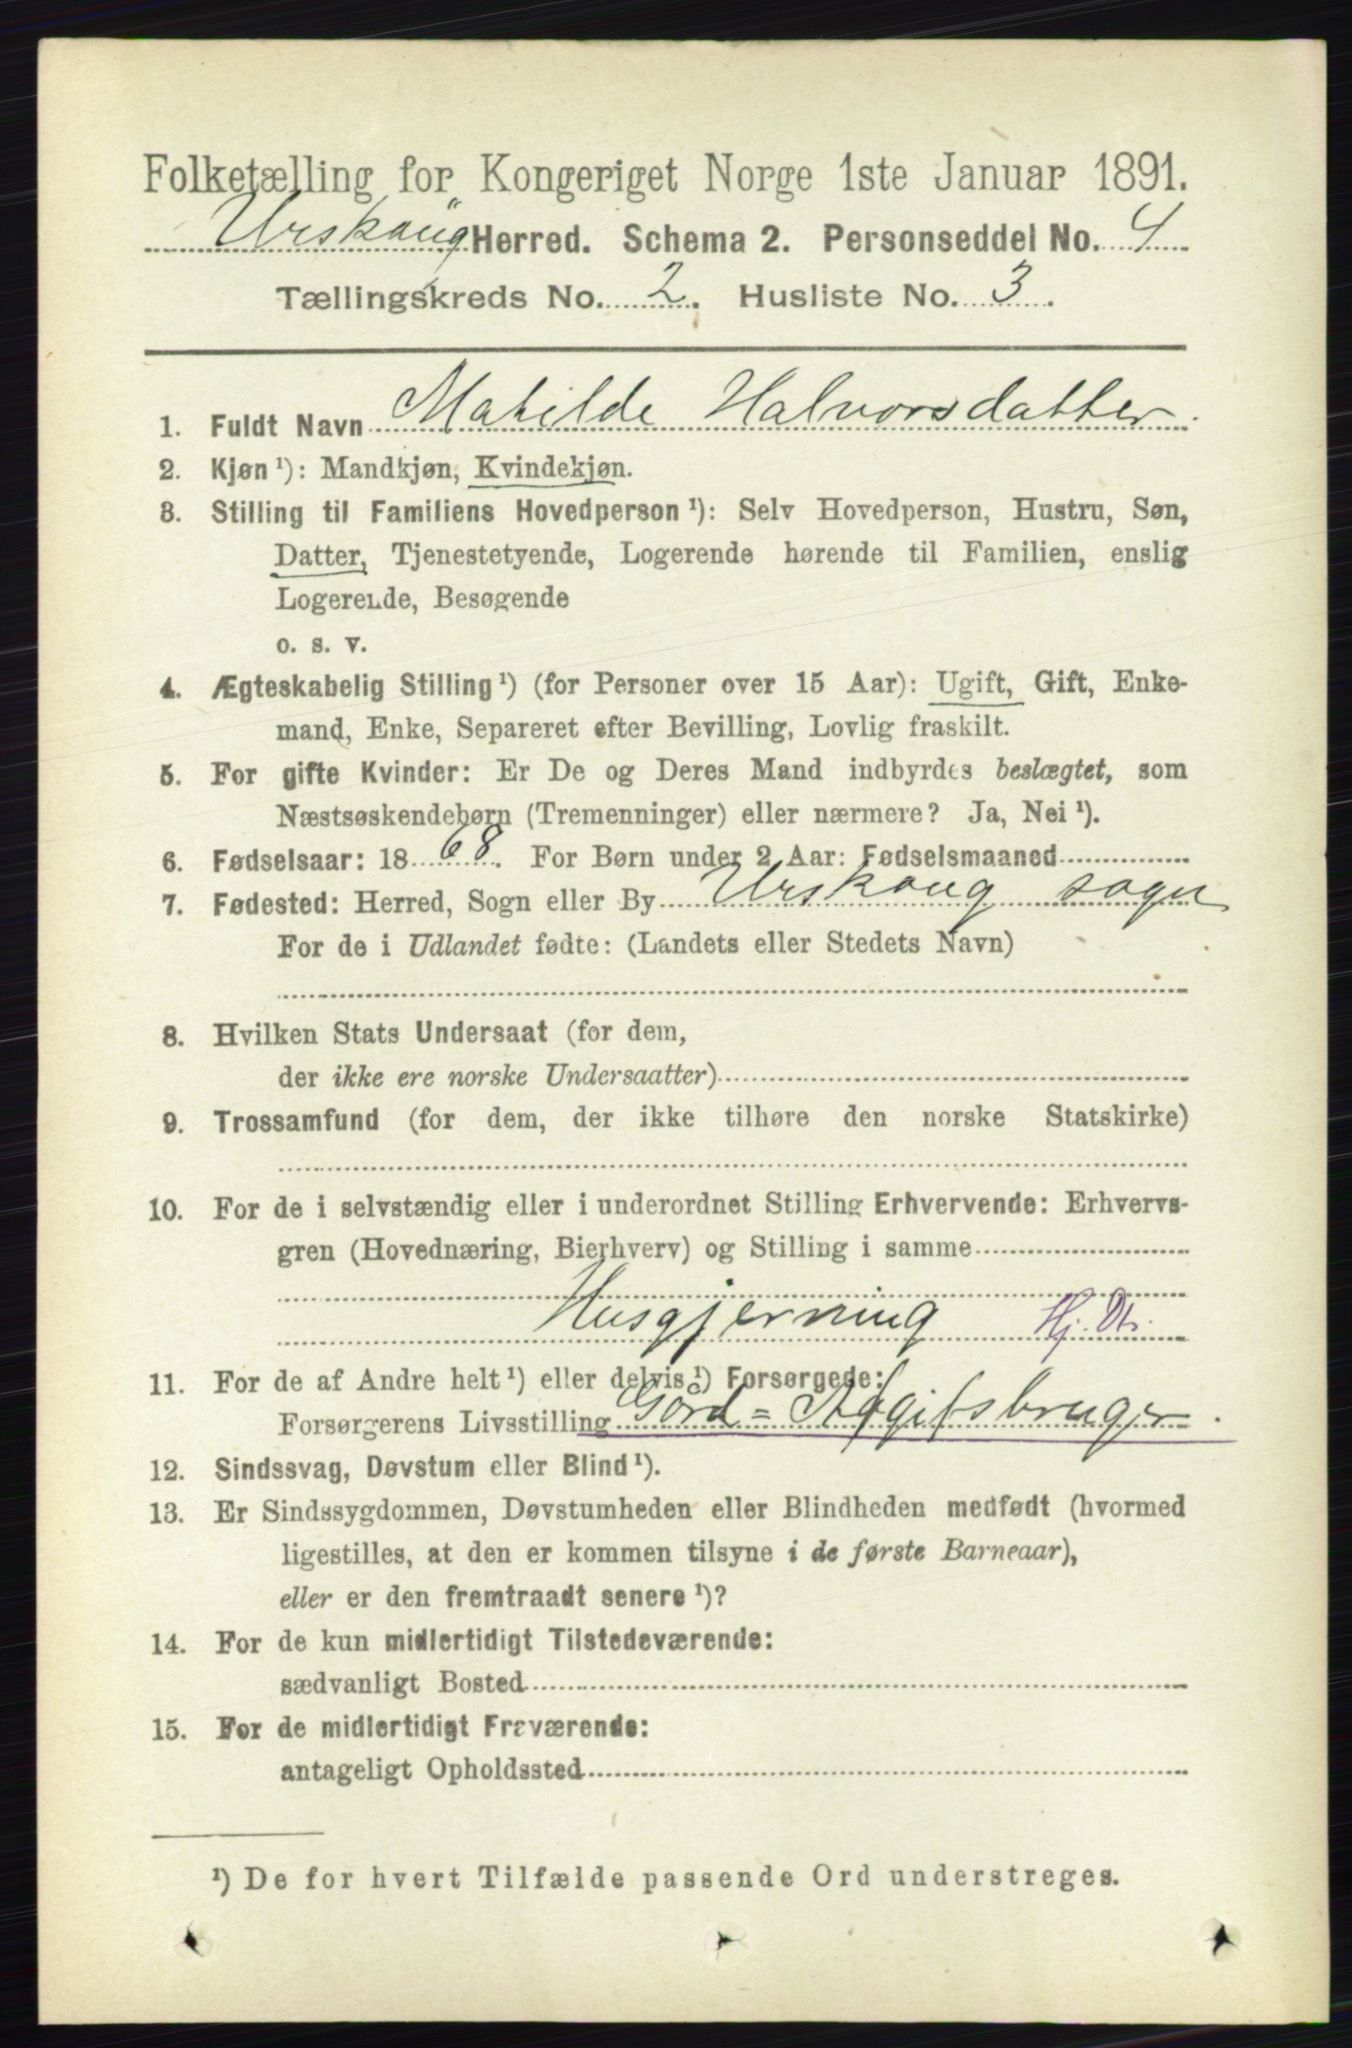 Folketælling for Kongeriget Norge 1ste Januar 1891.
Urskoug Herred. Schema 2. Personseddel No. 4
Tællingskreds No. 2. Husliste No. 3.
1. Fuldt Navn Matilde Halvorsdatter.
2. Kjøn ¹): Mandkjøn, Kvindekjøn.
3. Stilling til Familiens Hovedperson ¹): Selv Hovedperson, Hustru, Søn,
Datter, Tjenestetyende, Logerende hørende til Familien, enslig
Logerende, Besøgende
o. s. v.
4. Ægteskabelig Stilling ¹) (for Personer over 15 Aar): Ugift, Gift, Enke-
mand, Enke, Separeret efter Bevilling, Lovlig fraskilt.
5. For gifte Kvinder: Er De og Deres Mand indbyrdes beslægtet, som
Næstsøskendebørn (Tremenninger) eller nærmere? Ja, Nei ¹).
6. Fødselsaar: 1868. For Børn under 2 Aar: Fødselsmaaned
7. Fødested: Herred, Sogn eller By Urskoug sogn
For de i Udlandet fødte: (Landets eller Stedets Navn)
8. Hvilken Stats Undersaat (for dem,
der ikke ere norske Undersaatter)
9. Trossamfund (for dem, der ikke tilhøre den norske Statskirke)
10. For de i selvstændig eller i underordnet Stilling Erhvervende: Erhvervs-
gren (Hovednæring, Bierhverv) og Stilling i samme
Husgjerning Hj. Dtr.
11. For de af Andre helt ¹) eller delvis ¹) Forsørgede:
Forsørgerens Livsstilling Gård = Afgifsbruger.
12. Sindssvag, Døvstum eller Blind ¹).
13. Er Sindssygdommen, Døvstumheden eller Blindheden medfødt (hvormed
ligestilles, at den er kommen tilsyne i de første Barneaar),
eller er den fremtraadt senere ¹)?
14. For de kun midlertidigt Tilstedeværende:
sædvanligt Bosted
15. For de midlertidigt Fraværende:
antageligt Opholdssted
¹) De for hvert Tilfælde passende Ord understreges.